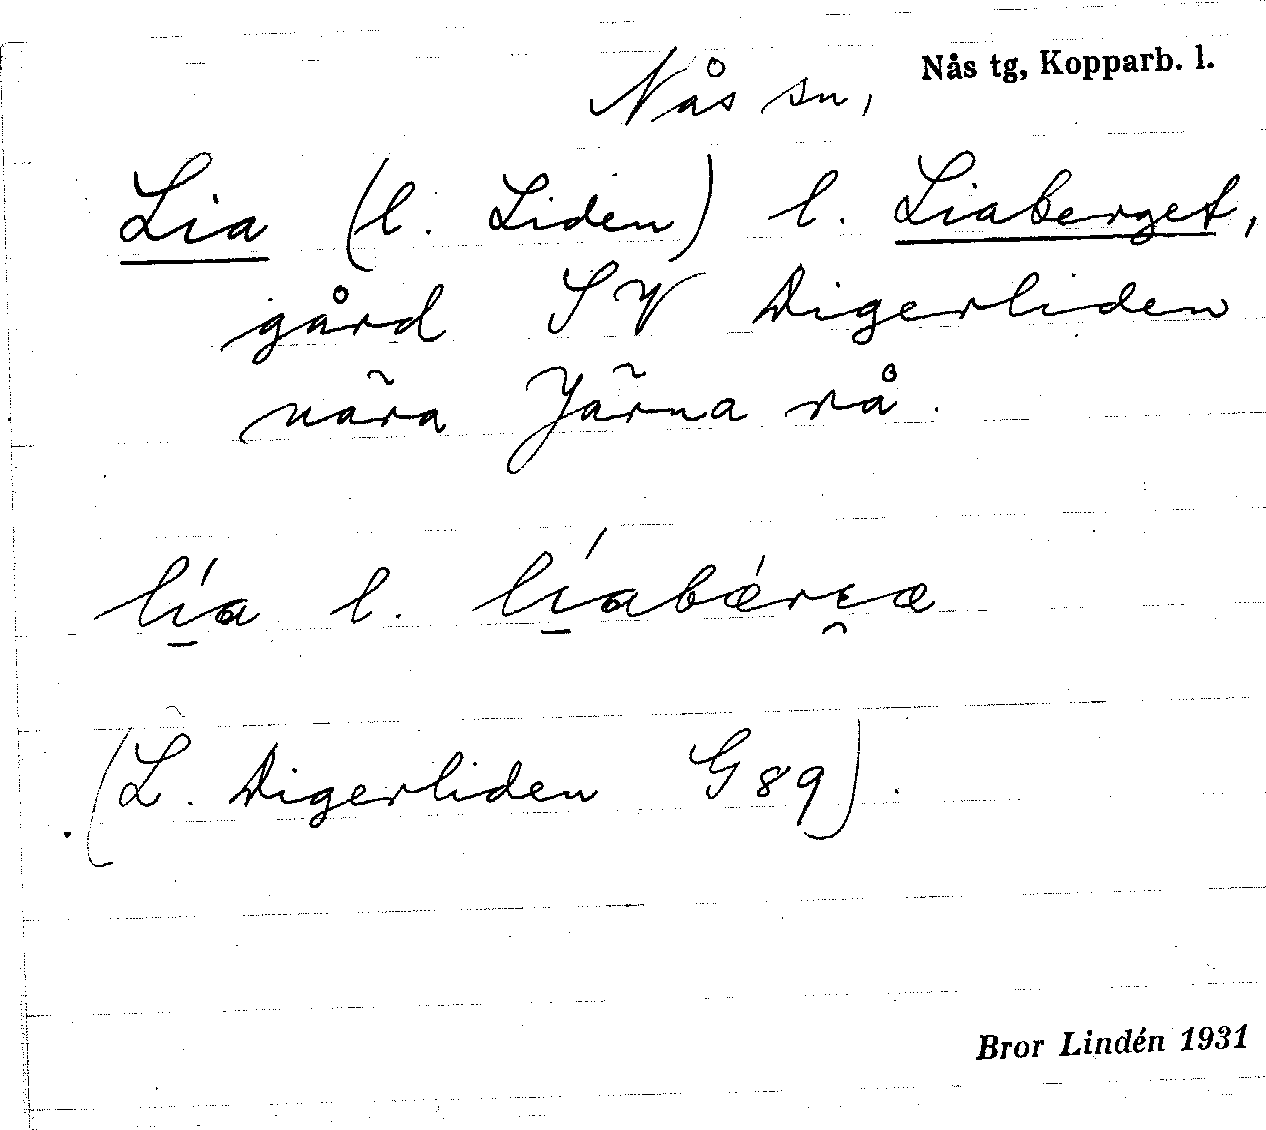 Nås tg, Kopparb. l.
Nås sn,
Lia (l. Liden) l. Liaberget,
gård SV Digerliden
nära Järna rå.
lı̱́a l. lı̱́abǽrɛ̯æ
(L. Digerliden G89).
Bror Lindén 1931